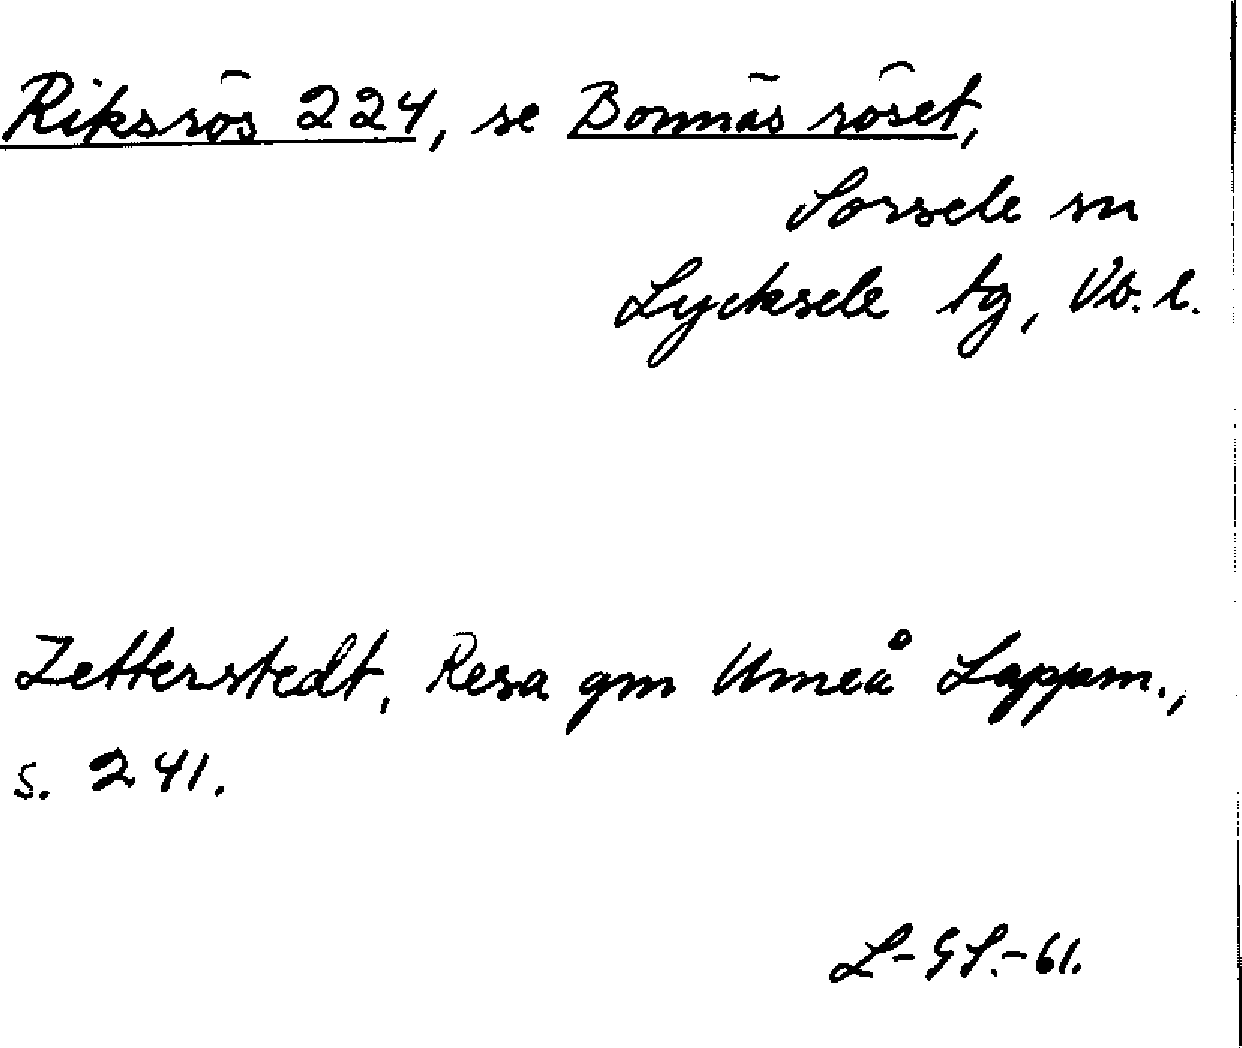 Riksrös 224, se Bonnäsröset,
Sorsele sn
Lycksele tg, Vb. l.
Zetterstedt, Resa gm Umeå Lappm.,
s. 241.
L-GS.-61.